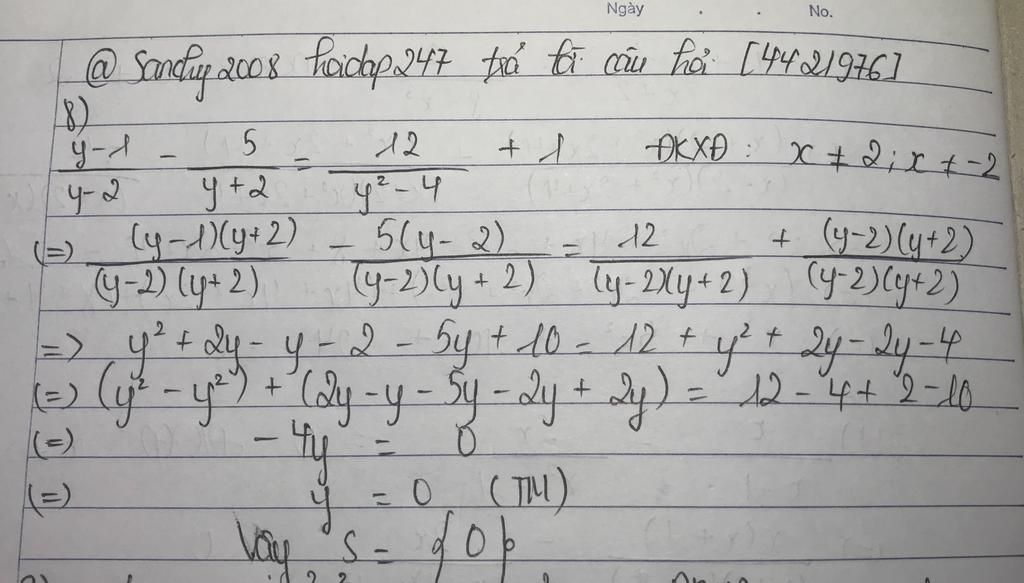 Ngày . . No.
@ Sandy2008 hoidap247 trả lời câu hỏi [4421976]
8)
(y-1)/(y-2) - 5/(y+2) = 12/(y²-4) + 1 ĐKXĐ: x ≠ 2; x ≠ -2
(=) (y-1)(y+2)/(y-2)(y+2) - 5(y-2)/(y-2)(y+2) = 12/(y-2)(y+2) + (y-2)(y+2)/(y-2)(y+2)
=> y² + 2y - y - 2 - 5y + 10 = 12 + y² + 2y - 2y - 4
(=) (y² - y²) + (2y - y - 5y - 2y + 2y) = 12 - 4 + 2 - 10
(=) -4y = 0
(=) y = 0 (TM)
Vậy S = {0}